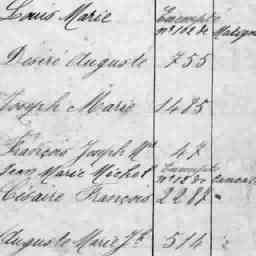 Louis Marie Exempté
n° 102 de Matign
Désiré Auguste 755
Joseph Marie 1485
François Joseph Mie 47
Jean Marie Michel Exempté
n° 183 Cancale
Césaire François 2287
Auguste Marie Jh 514